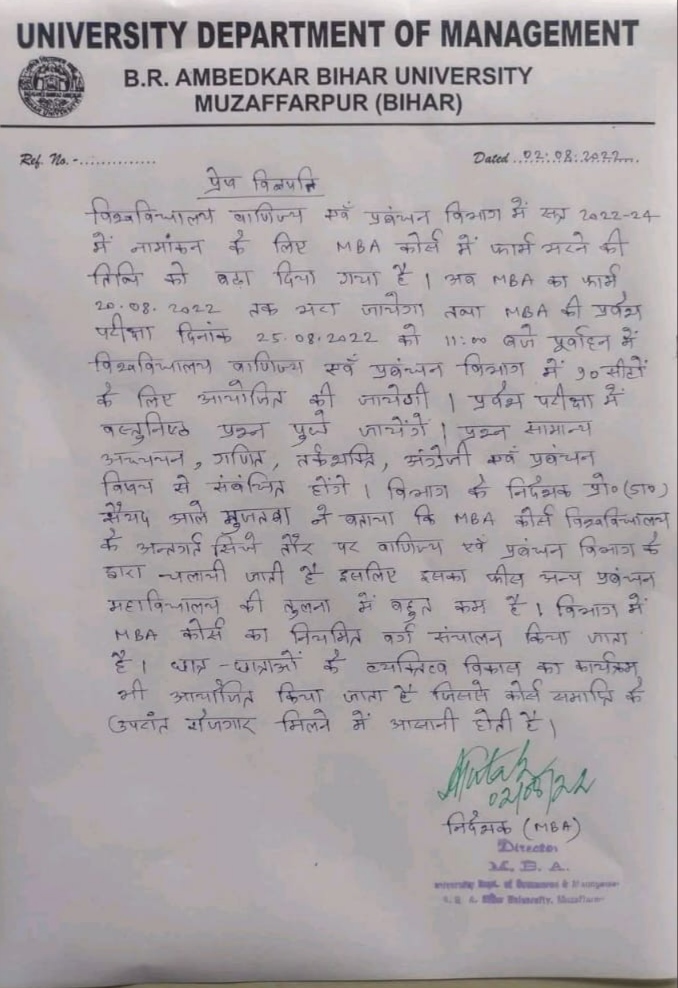 UNIVERSITY DEPARTMENT OF MANAGEMENT
B.R. AMBEDKAR BIHAR UNIVERSITY
MUZAFFARPUR (BIHAR)
Ref. No. -..............
Dated ..02.08.2022....
प्रेस विज्ञप्ति
विश्वविद्यालय वाणिज्य एवँ प्रबंधन विभाग में सत्र 2022-24
में नामांकन के लिए MBA कोर्स में फार्म भरने की
तिथि को बढ़ा दिया गया है । अब MBA का फार्म
20.08.2022 तक भरा जायेगा तथा MBA की प्रवेश
परीक्षा दिनांक 25.08.2022 को 11:00 बजे पूर्वाहन में
विश्वविद्यालय वाणिज्य एवँ प्रबंधन विभाग में 90 सीटों
के लिए आयोजित की जायेगी । प्रवेश परीक्षा में
वस्तुनिष्ठ प्रश्न पुछे जायेंगें । प्रश्न सामान्य
अध्ययन, गणित, तर्कशक्ति, अंग्रेजी एवं प्रबंधन
विषय से संबंधित होंगे । विभाग के निदेशक प्रो० (डा०)
सैयद आले मुजतबा ने बताया कि MBA कोर्स विश्वविद्यालय
के अन्तर्गत सिधे तौर पर वाणिज्य एवँ प्रबंधन विभाग के
द्वारा चलायी जाती है इसलिए इसका फीस अन्य प्रबंधन
महाविद्यालय की तुलना में बहुत कम है । विभाग में
MBA कोर्स का नियमित वर्ग संचालन किया जाता
है । छात्र-छात्राओं के व्यक्तित्व विकास का कार्यक्रम
भी आयोजित किया जाता है जिससे कोर्स समाप्ति के
उपरांत रोजगार मिलने में आसानी होती है ।
02/08/22
निदेशक (MBA)
Director
M. B. A.
University Dept. of Commerce &
B. R. A. Bihar University, Muzaffarpur